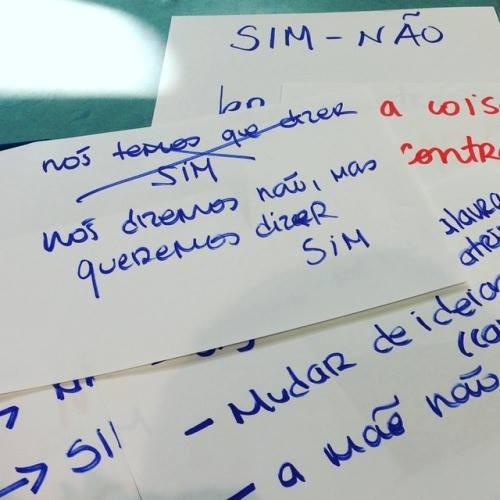 SIM - NÃO
a cois
contr
nós temos que dizer
SIM
nós dizemos não, mas
queremos dizer
SIM
- Mudar de ideia
→ SIM
- a mão não